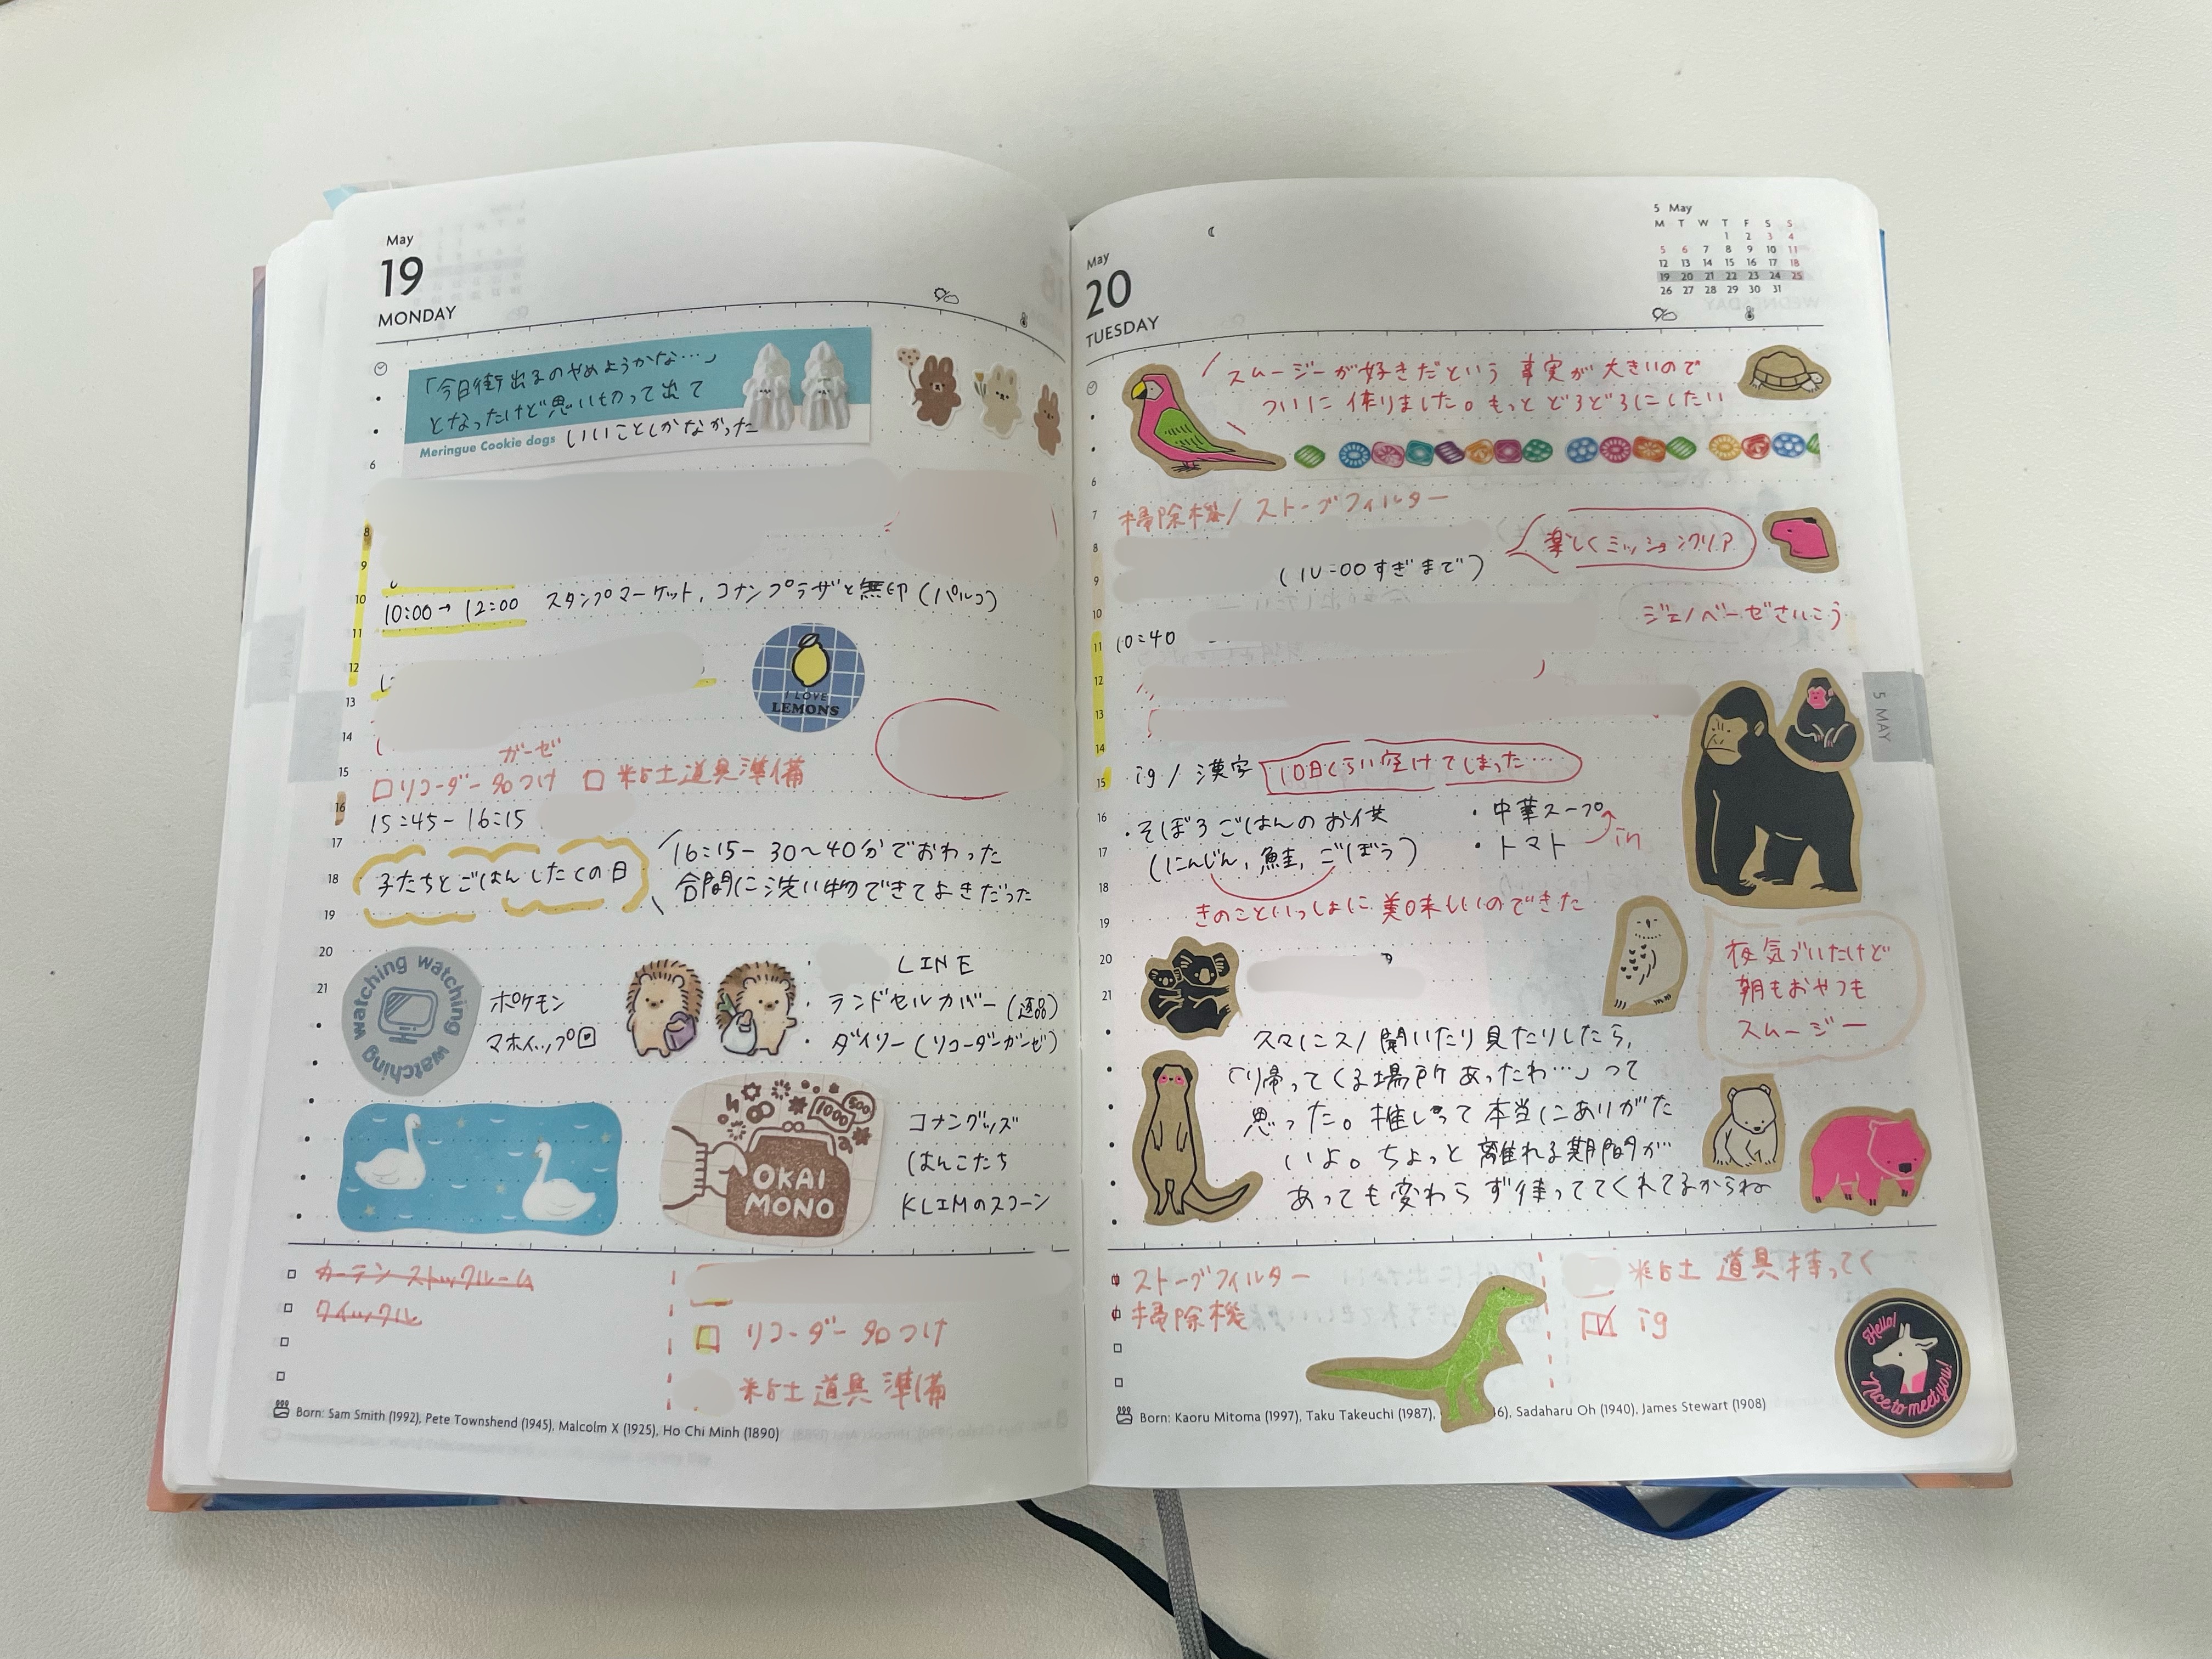 May
19
MONDAY
「今日街出るのやめようかな…」
となったけど思いきって出て
いいことしかなかった
Meringue Cookie dogs
6
8
9
10
10:00→12:00 スタンプマーケット, コナンプラザと無印(パルコ)
11
12
13
I LOVE
LEMONS
14
ガーゼ
15
□リコーダー名つけ □粘土道具準備
16
15:45-16:15
17
16:15-30~40分でおわった
18
子たちとごはんしたくの日
合間に洗い物できてよきだった
19
20
21
watching watching watching
ポケモン
マホイップ回
LINE
・ランドセルカバー(返品)
・ダイソー(リコーダーガーゼ)
1000
500
OKAI
MONO
コナングッズ
はんこたち
KLIMのスコーン
カーテン ストックルーム
クイックル
リコーダー名つけ
粘土道具準備
Born: Sam Smith (1992), Pete Townshend (1945), Malcolm X (1925), Ho Chi Minh (1890)
May
20
TUESDAY
5 May
M T W T F S S
1 2 3 4
5 6 7 8 9 10 11
12 13 14 15 16 17 18
19 20 21 22 23 24 25
26 27 28 29 30 31
スムージーが好きだという事実が大きいので
ついに作りました。もっとどろどろにしたい
6
7
掃除機/ストーブフィルター
8
楽しくミッションクリア
9
(10:00すぎまで)
10
ジェノベーゼさいこう
10:40
11
12
13
14
15
ig/漢字 10日くらい空けてしまった…
16
・そぼろごはんのお供
・中華スープ
17
(にんじん, 鮭, ごぼう)
・トマト
in
18
きのこといっしょに美味しいのできた
19
20
21
夜気づいたけど
朝もおやつも
スムージー
久々にスノ聞いたり見たりしたら,
「帰ってくる場所あったわ…」って
思った。推しって本当にありがた
いよ。ちょっと離れる期間が
あっても変わらず待っててくれてるからね
5 MAY
ストーブフィルター
掃除機
粘土道具持ってく
ig
Hello!
Nice to meet you!
Born: Kaoru Mitoma (1997), Taku Takeuchi (1987), Sadaharu Oh (1940), James Stewart (1908)